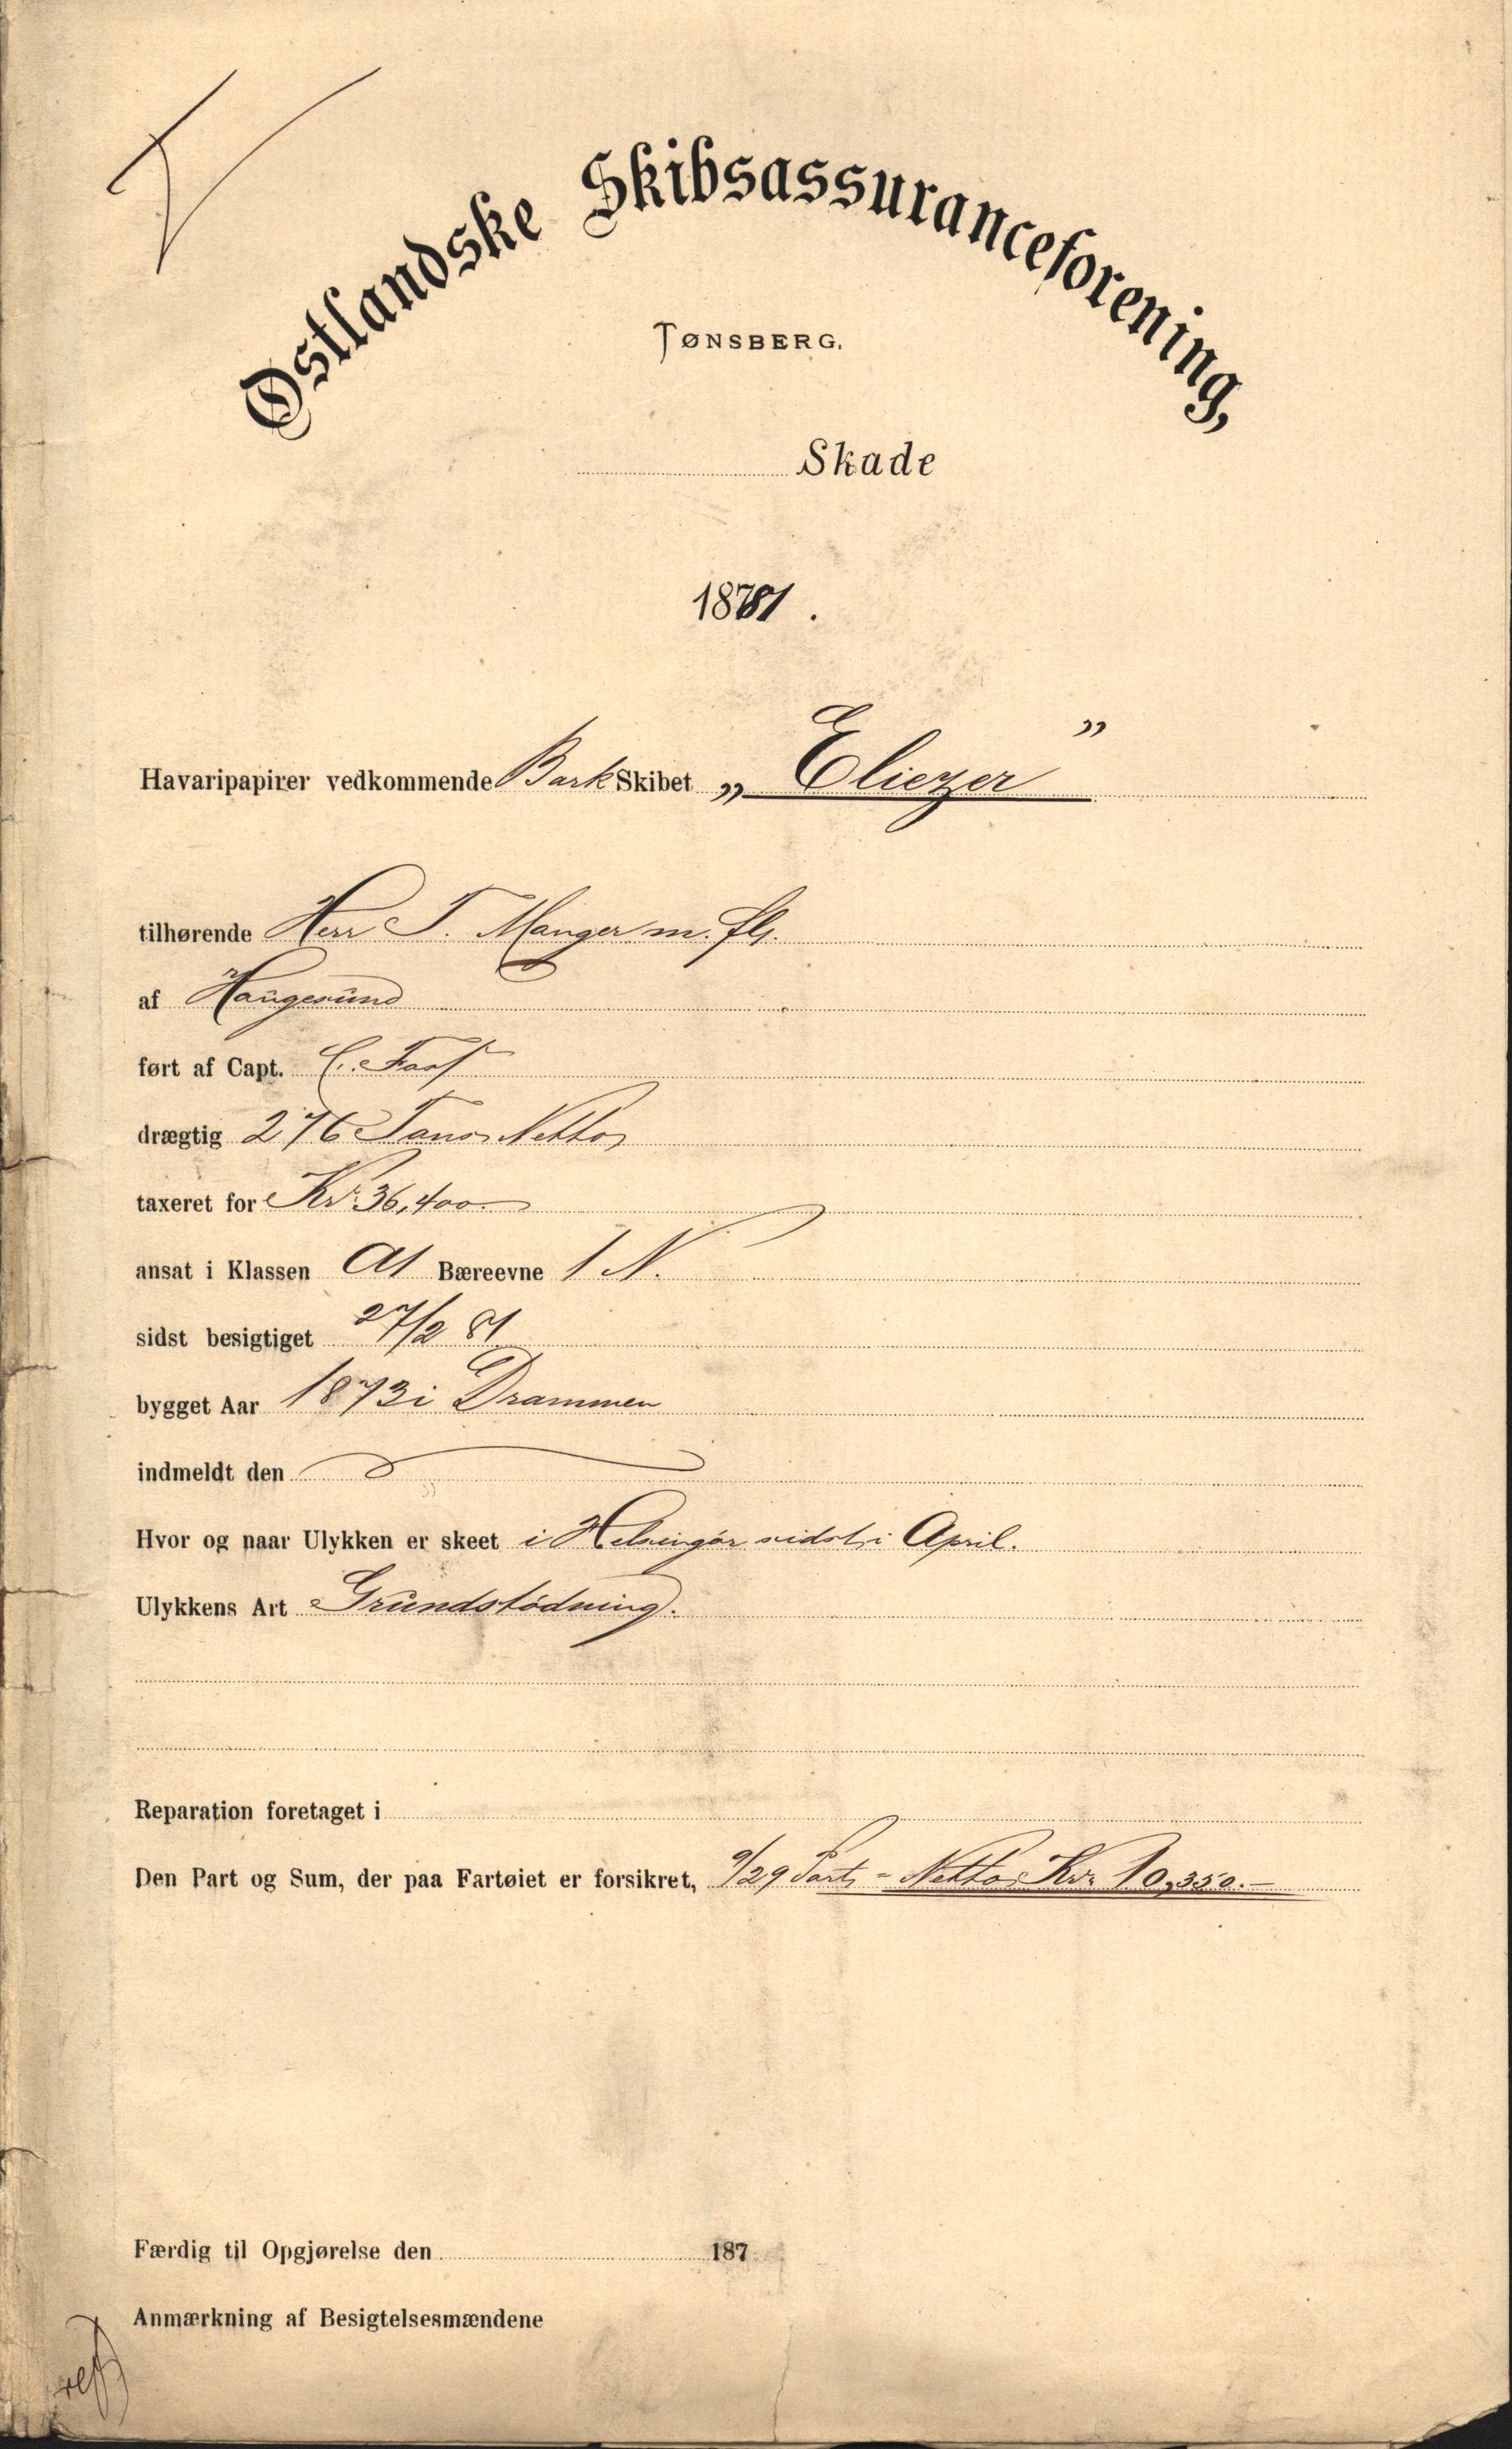 Østlandske Skibsassuranceforening,
TØNSBERG.
Skade
1881.
Havaripapirer vedkommende Bark Skibet „Eliezer”
tilhørende Herr T. Manger m. fl.
af Haugesund
ført af Capt. C.
drægtig 276 Tons Netto
taxeret for Kr. 36,400
ansat i Klassen A1 Bæreevne 1 N.
sidst besigtiget 27/2 81
bygget Aar 1873 i Drammen
indmeldt den
Hvor og naar Ulykken er skeet i Helsingör sidst i April.
Ulykkens Art Grundstödning.
Reparation foretaget i
Den Part og Sum, der paa Fartøiet er forsikret, 9/29 Part = Netto Kr. 10,350.-
Færdig til Opgjørelse den 187
Anmærkning af Besigtelsesmændene